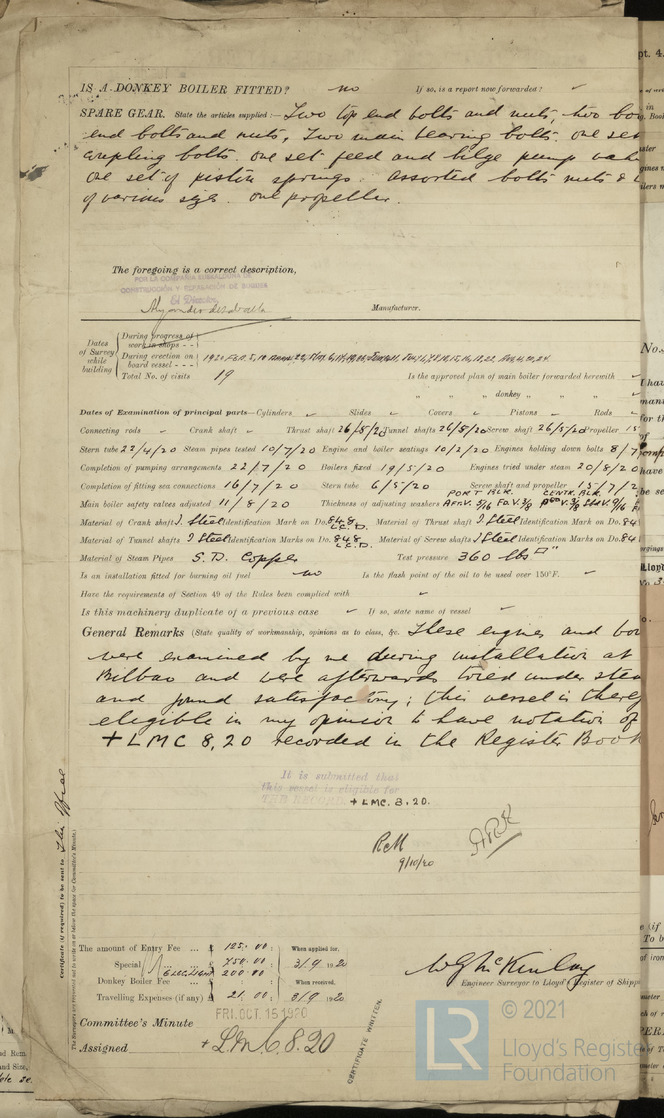 IS A DONKEY BOILER FITTED? no If so, is a report now forwarded? ✓
SPARE GEAR. State the articles supplied:— Two top end bolts and nuts, two bo
end bolts and nuts, Two main bearing bolts. one set
coupling bolts. one set feed and bilge pump
one set of piston springs. assorted bolts nuts &
of various size. one propeller.
The foregoing is a correct description,
CONSTRUCCIÓN Y REPARACIÓN DE BUQUES
El Director,
Manufacturer.
Dates of Survey while building
During progress of work in shops - -
During erection on board vessel - - -
Total No. of visits 19
Is the approved plan of main boiler forwarded herewith ✓
" " " donkey " " " ✓
Dates of Examination of principal parts—Cylinders ✓ Slides ✓ Covers ✓ Pistons ✓ Rods ✓
Connecting rods ✓ Crank shaft ✓ Thrust shaft 26/5/20 Tunnel shafts 26/5/20 Screw shaft 26/5/20 Propeller 15
Stern tube 22/4/20 Steam pipes tested 10/7/20 Engine and boiler seatings 10/2/20 Engines holding down bolts 8/7
Completion of pumping arrangements 22/7/20 Boilers fixed 19/5/20 Engines tried under steam 20/8/20
Completion of fitting sea connections 16/7/20 Stern tube 6/5/20 Screw shaft and propeller 15/7/2
Main boiler safety valves adjusted 11/8/20 Thickness of adjusting washers PORT BLR. CENTR. BLR.
Material of Crank shaft I. Steel Identification Mark on Do. 848 Material of Thrust shaft I. Steel Identification Mark on Do. 84
Material of Tunnel shafts I Steel Identification Marks on Do. 848 Material of Screw shafts I Steel Identification Marks on Do. 84
Material of Steam Pipes S. D. Copper Test pressure 360 lbs □"
Is an installation fitted for burning oil fuel no Is the flash point of the oil to be used over 150°F. ✓
Have the requirements of Section 49 of the Rules been complied with ✓
Is this machinery duplicate of a previous case ✓ If so, state name of vessel ✓
General Remarks (State quality of workmanship, opinions as to class, &c. These engines and boi
were examined by me during installation at
Bilbao and were afterwards tried under stea
and found satisfactory; this vessel is there
eligible in my opinion to have notation of
+LMC 8,20 recorded in the Register Book
It is submitted that
this vessel is eligible for
THE RECORD. + LMC. 8. 20.
RcM
9/10/20
ARK
Certificate (if required) to be sent to This Office
The Surveyors are requested not to write on or below the space for Committee's Minute.
The amount of Entry Fee ... £ 125. 00 : When applied for,
Special ... £ 750. 00 : 3/9 1920
200. 00 :
Donkey Boiler Fee ... £ : : When received,
Travelling Expenses (if any) £ 21. 00 : 3/9 1920
W G McKinlay
Engineer Surveyor to Lloyd's Register of Shipp
Committee's Minute FRI. OCT. 15 1920
Assigned + LMC 8.20
CERTIFICATE WRITTEN.
© 2021
Lloyd's Register
Foundation
LR